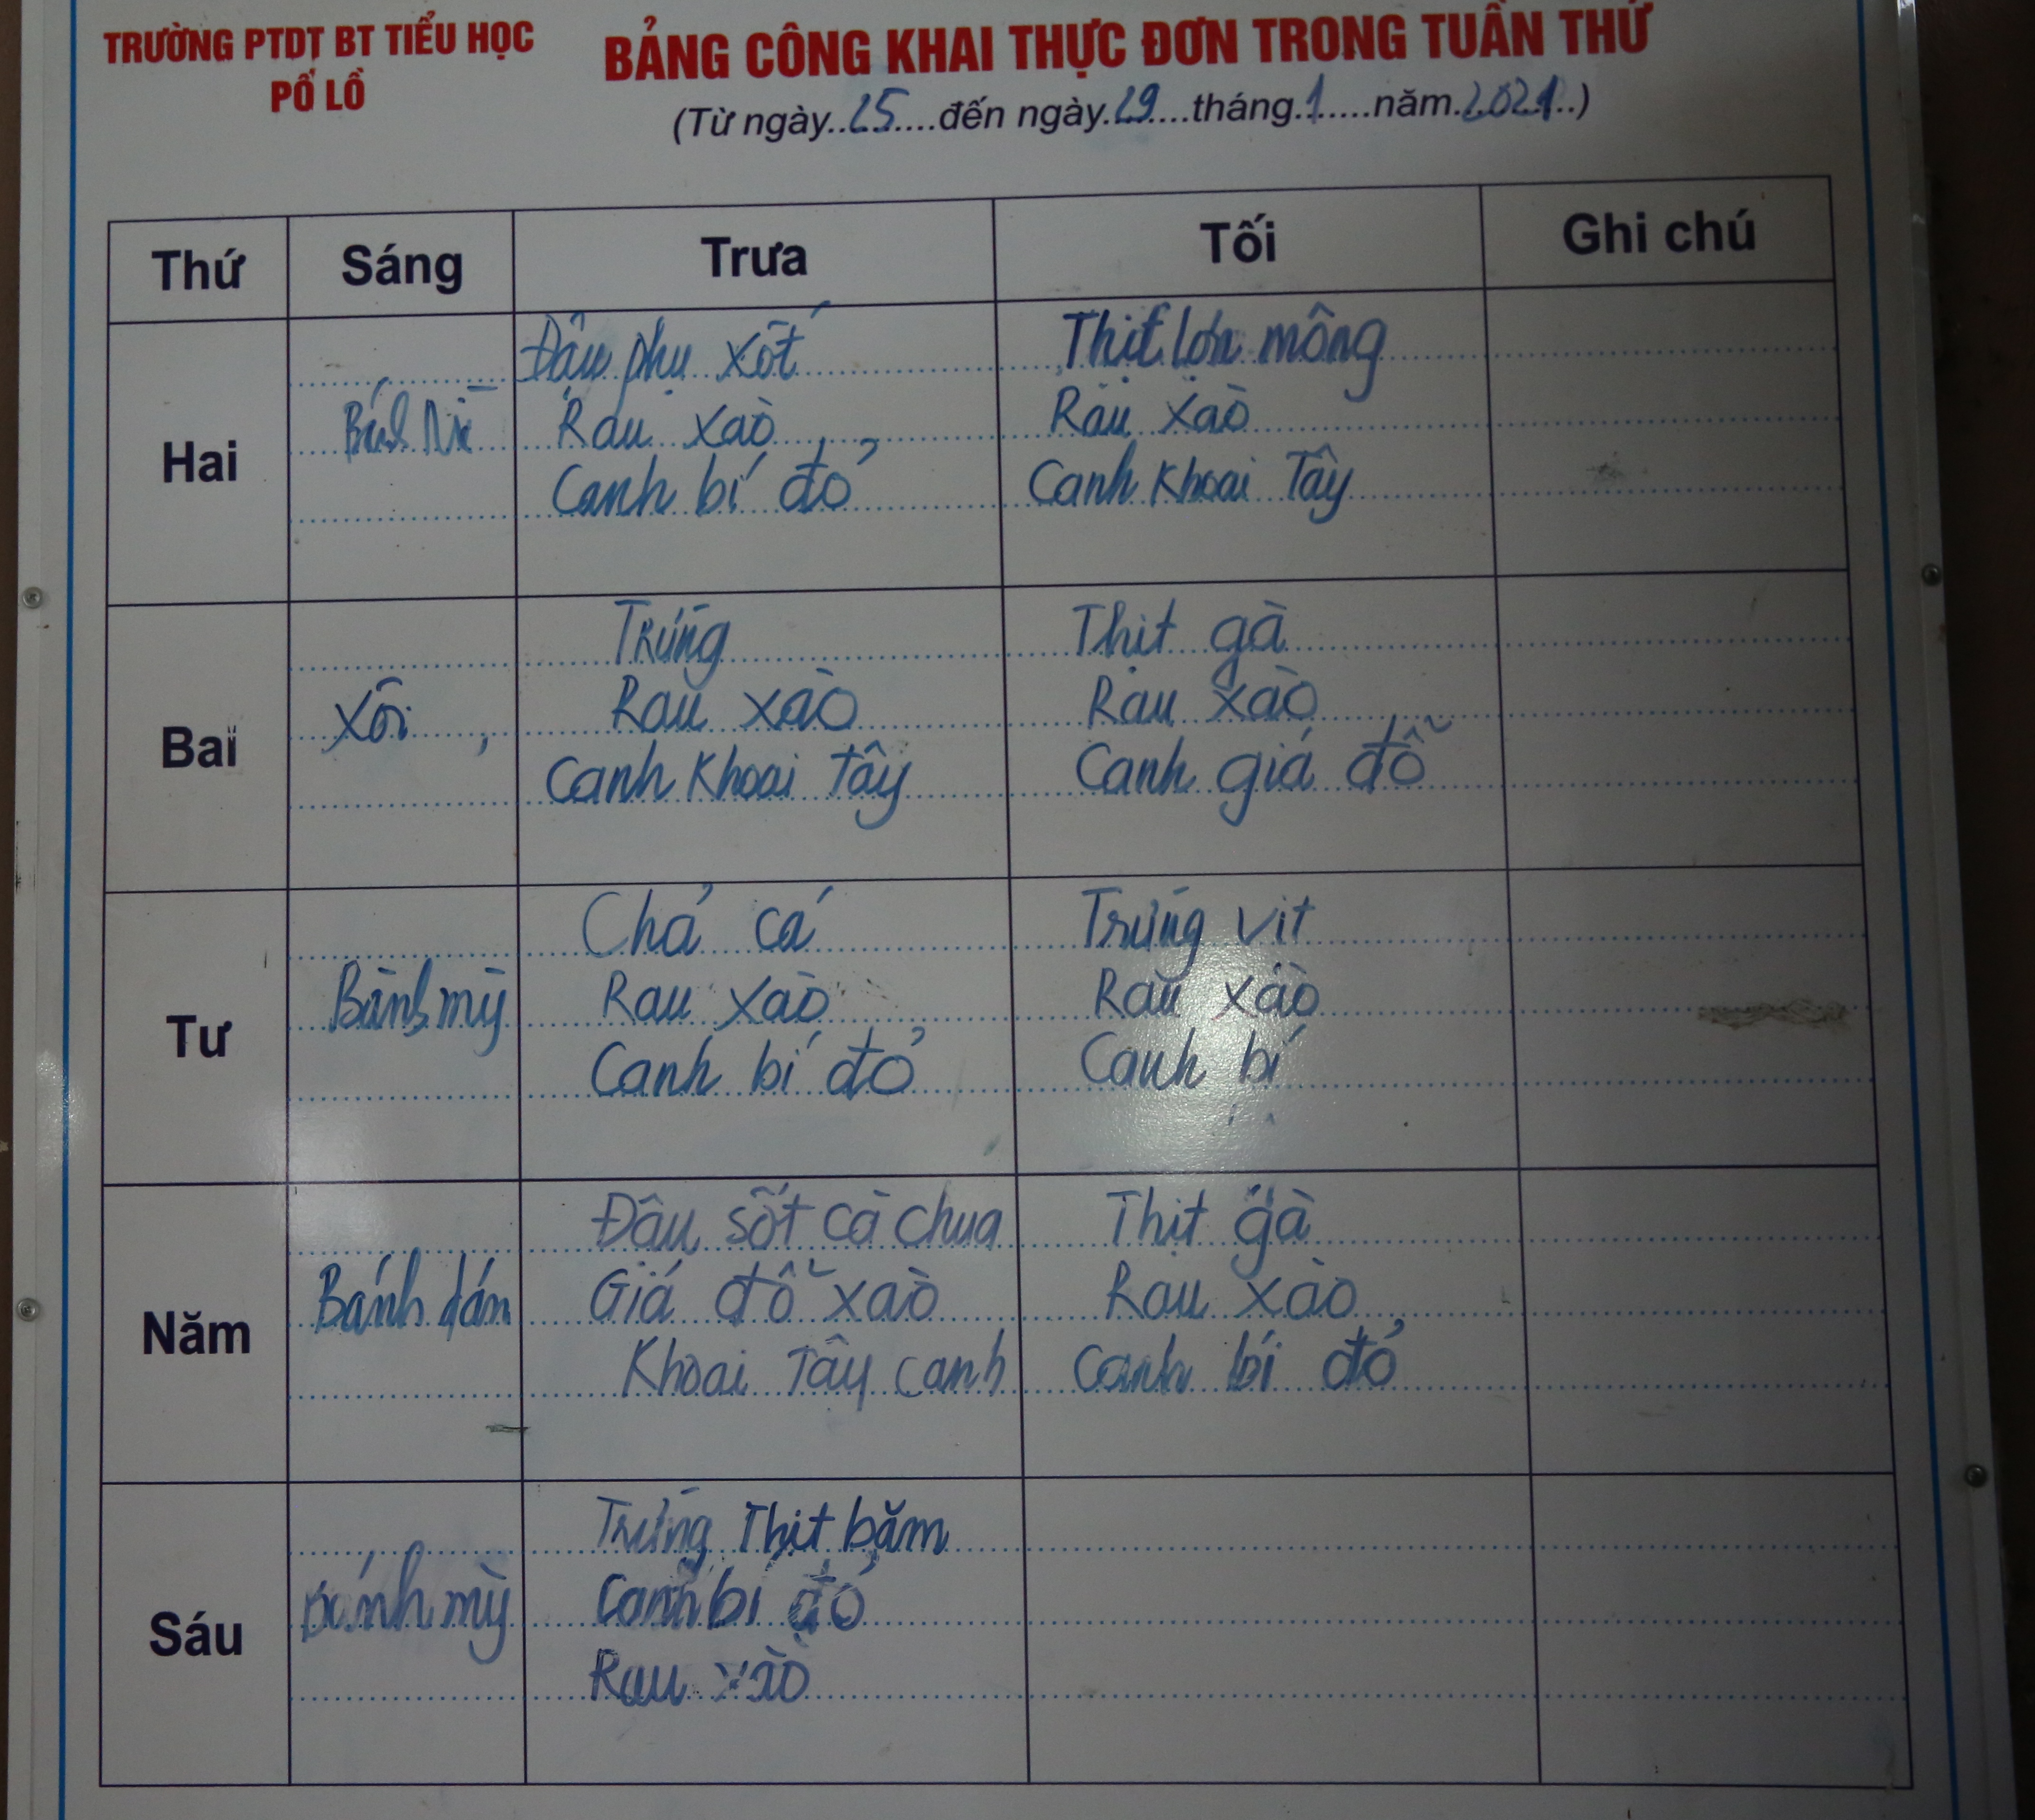 TRƯỜNG PTDT BT TIỂU HỌC
PỐ LỒ
BẢNG CÔNG KHAI THỰC ĐƠN TRONG TUẦN THỨ
(Từ ngày..25.....đến ngày.29....tháng.1....năm.2021..)
Thứ Sáng Trưa Tối Ghi chú
Hai
Bánh Mì
Đậu phụ xốt
Rau xào
Canh bí đỏ
Thịt lợn mông
Rau xào
Canh Khoai Tây
Ba
Xôi
Trứng
Rau xào
Canh Khoai Tây
Thịt gà
Rau xào
Canh giá đỗ
Tư
Bánh mỳ
Chả cá
Rau xào
Canh bí đỏ
Trứng vịt
Rau xào
Canh bí
Năm
Bánh dán
Đậu sốt cà chua
Giá đỗ xào
Khoai Tây canh
Thịt gà
Rau xào
Canh bí đỏ
Sáu
Bánh mỳ
Trứng Thịt băm
Canh bí đỏ
Rau xào